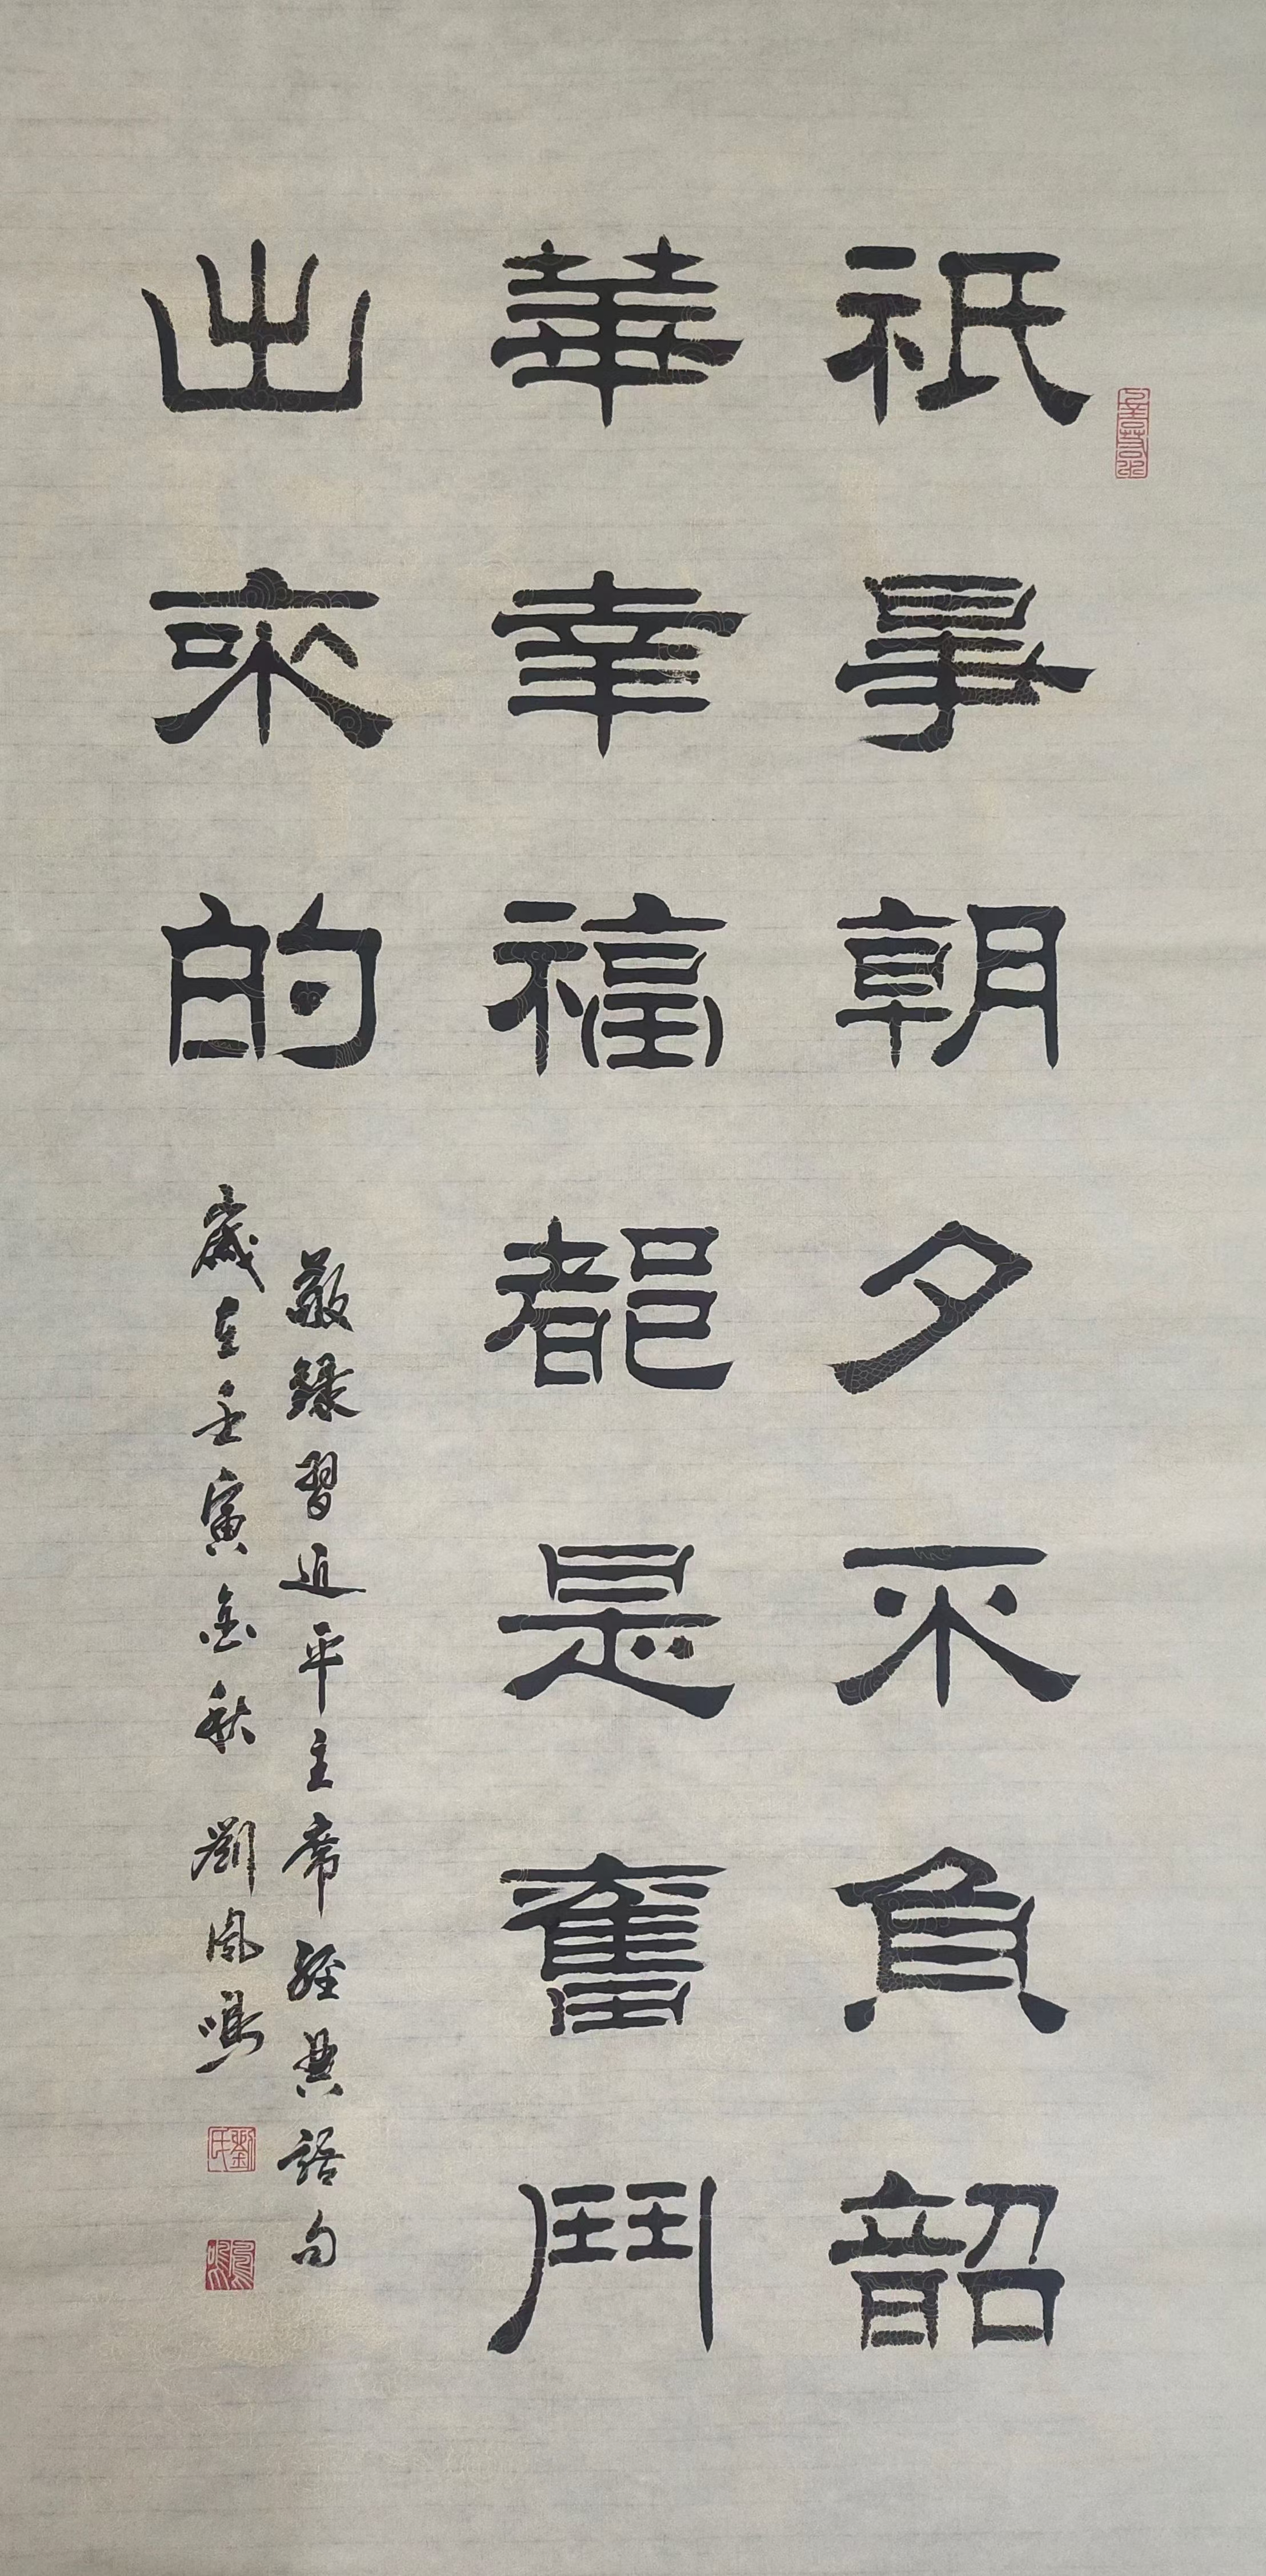 祇爭朝夕不負韶
華幸福都是奮鬥
出來的
敬錄習近平主席經典語句
歲在壬寅金秋 劉鳳鳴
劉氏
鳳鳴